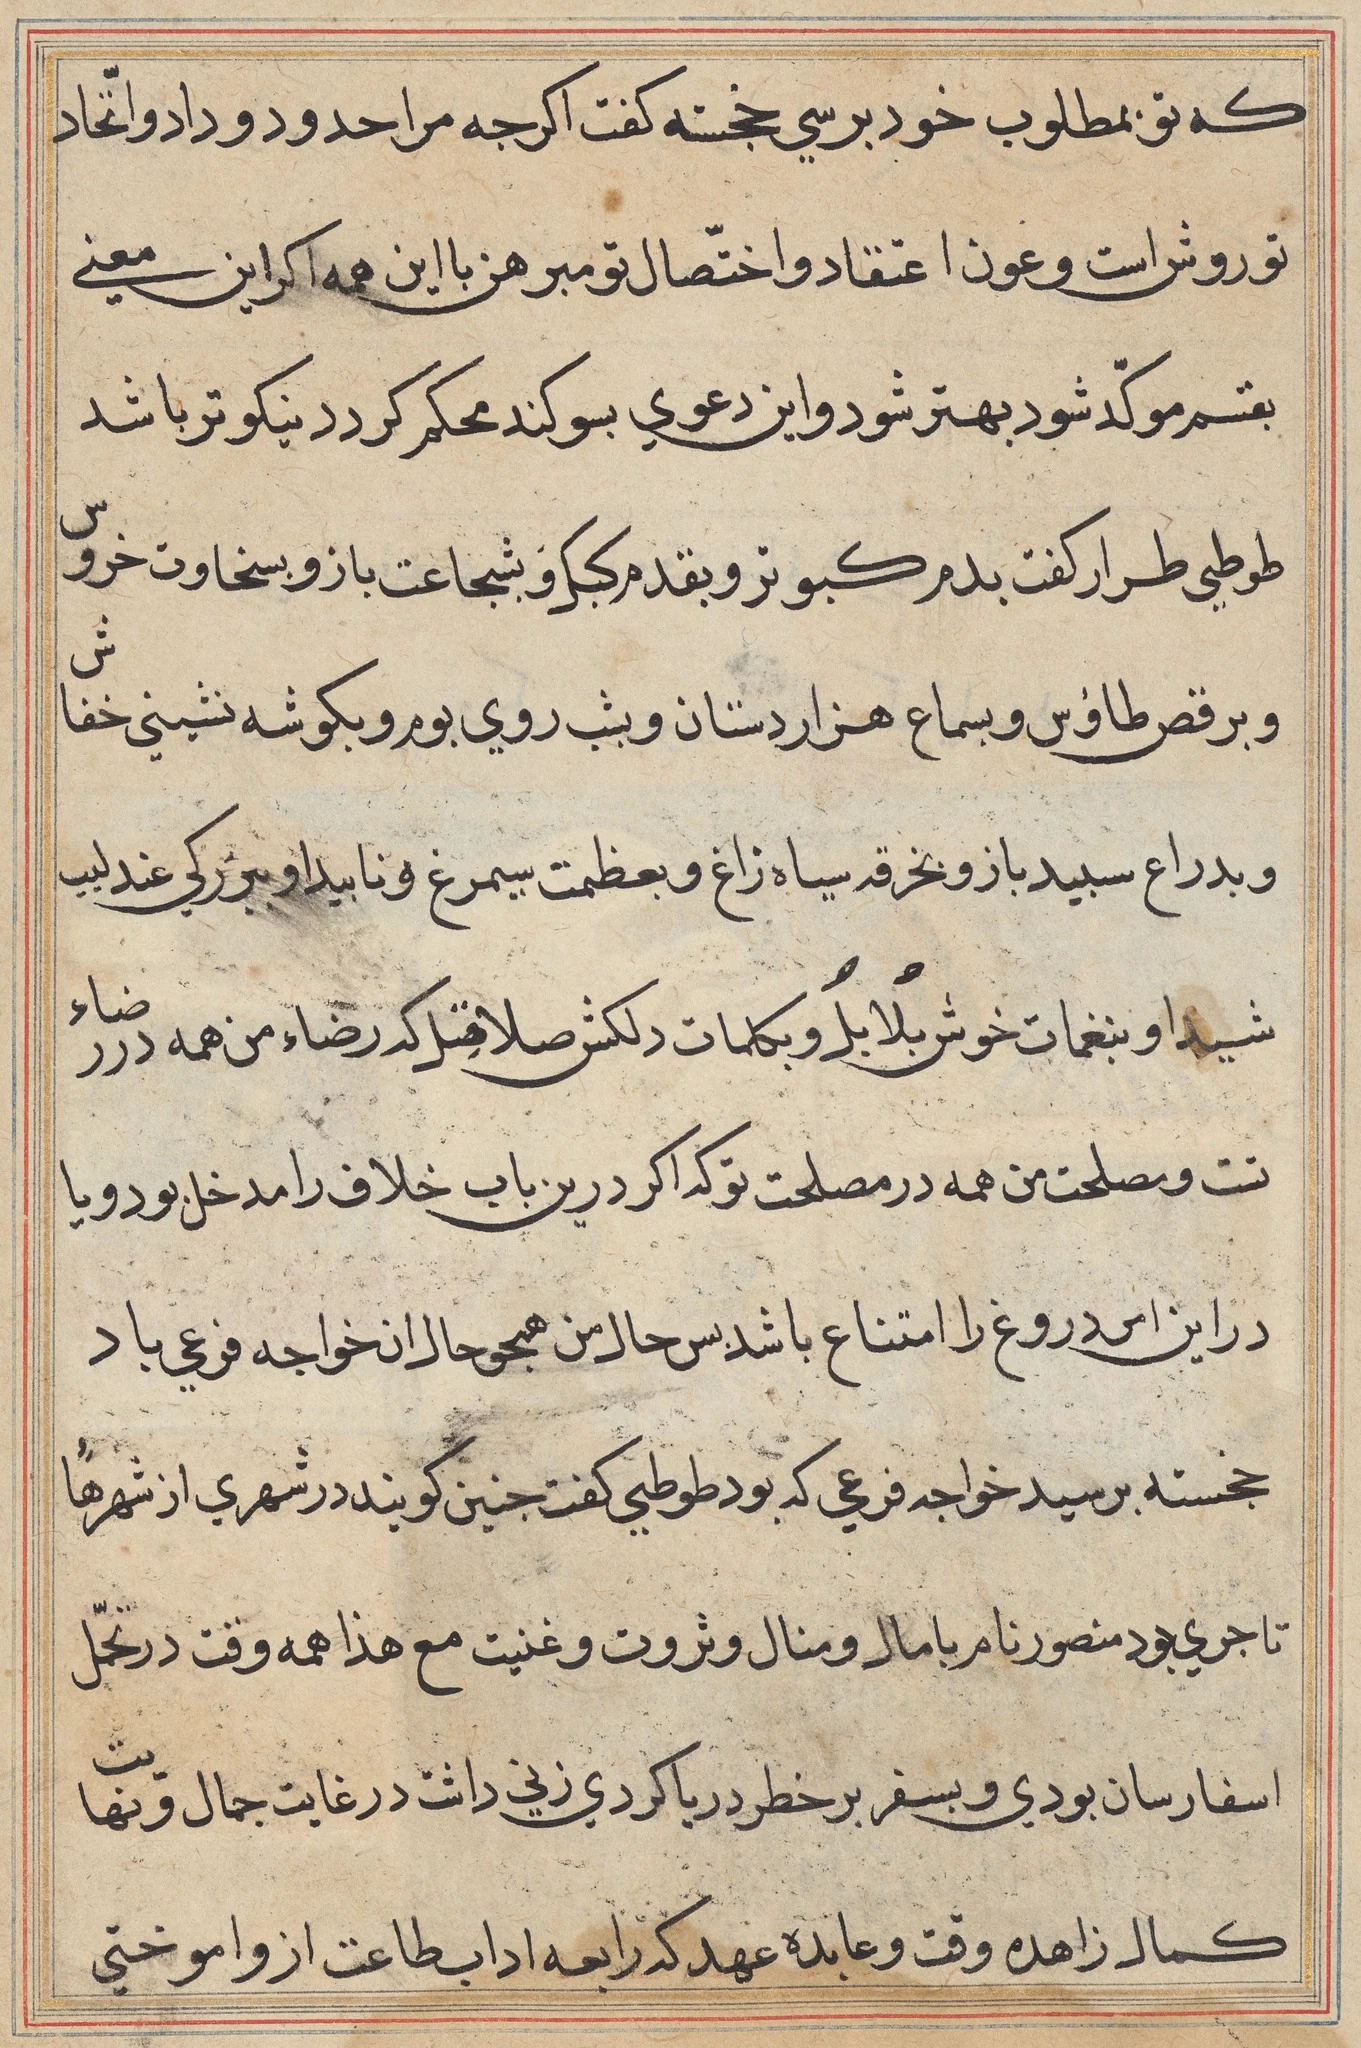 که تو بمطلوب خود برسي خجسته کفت اکرجه مرا حدود وداد واتّحاد
تو روشن است وعون اعتقاد واختّصال تو مبرهن با این همه اکر این معنی
بقسم موکّد شود بهتر شود واین دعوي بسوکند محکم کردد نیکوتر باشد
طوطي طرار کفت بدم کبوتر وبقدم کبک وبشجاعت باز وبسخاوت خروس
وبرقص طاؤس وبسماع هزاردستان وبشب روي بوم وبکوشه نشیني خفاش
وبدراع سبید باز وبخرقه سیاه زاغ وبعظمت سیمرغ ونابیدا وببزرکي عندلیب
شیدا وبنغمات خوش بلابل وبکلمات دلکش صلاصل که رضاء من همه در رضاء
تست ومصلحت من همه در مصلحت تو که اکر درین باب خلاف را مدخل بود ویا
در این امر دروغ را امتناع باشد بس حال من همجو حال ان خواجه فرعي باد
خجسته برسید خواجه فرعي که بود طوطي کفت جنین کویند در شهري از شهرها
تاجري بود منصور نام با مال ومنال وثروت وغنیت مع هذا همه وقت در تحمّل
اسفار سان بودي وبسفر بر خطر دریا کردي زني داشت در غایت جمال ونهایت
کمال زاهده وقت وعابده عهد که رابعه اداب طاعت ازو اموختي